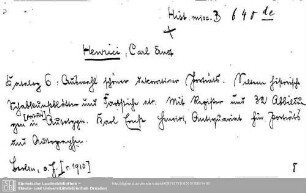 Hist. misc. B 640 de
Henrici, Carl Ernst
Katalog 6: Auswahl schöner dekorativer Porträts. Seltene historische
Schabkunstblätter und Farbstiche etc. Mit Register und 32 Abbildun-
gen in Autotypie. Karl Ernst Henrici, Antiquariat für Porträts
und Autographen
Berlin, o. J. [c. 1910]
8
Sächsische Landesbibliothek -
Staats- und Universitätsbibliothek Dresden